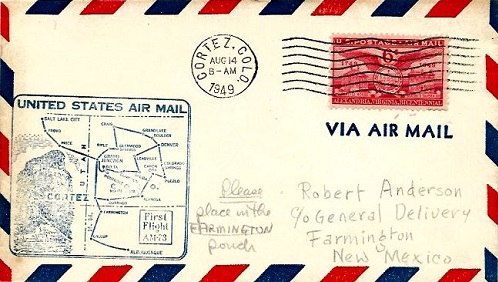 CORTEZ, COLO.
AUG 14
8-AM
1949
U.S. POSTAGE AIR MAIL
6¢
ALEXANDRIA, VIRGINIA, BICENTENNIAL
VIA AIR MAIL
UNITED STATES AIR MAIL
SALT LAKE CITY
PROVO
PRICE
CRAIG
GREELEY
BOULDER
DENVER
RIFLE
GLENWOOD SPRINGS
GRAND JUNCTION
DELTA
LEADVILLE
CANON CITY
COLORADO SPRINGS
PUEBLO
UTAH
CORTEZ
ALAMOSA
FARMINGTON
GALLUP
ALBUQUERQUE
N. M.
First
Flight
AM-73
Please
place in the
FARMINGTON
pouch
Robert Anderson
c/o General Delivery
Farmington
New Mexico